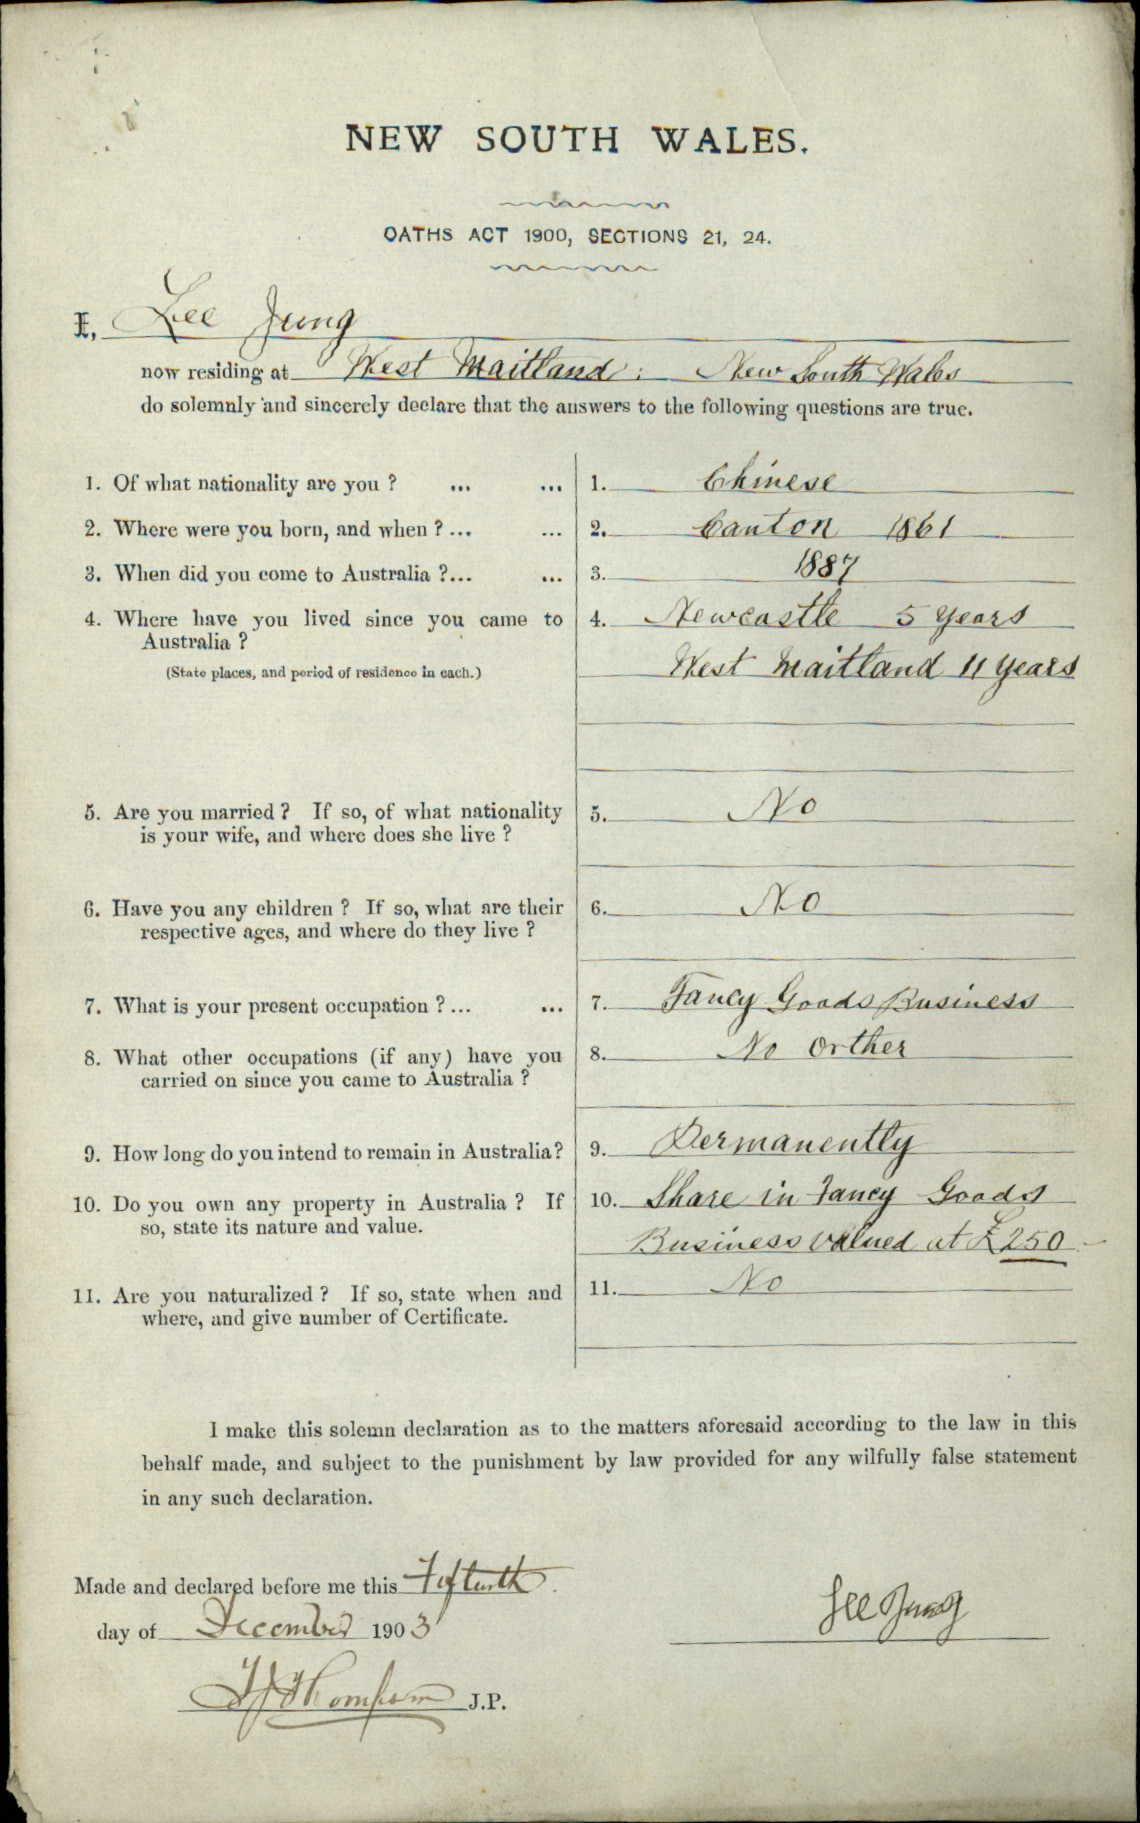 NEW SOUTH WALES.
OATHS ACT 1900, SECTIONS 21, 24.
I, Lee Jung
now residing at West Maitland: New South Wales
do solemnly and sincerely declare that the answers to the following questions are true.
1. Of what nationality are you ? ... ... 1. Chinese
2. Where were you born, and when ? ... ... 2. Canton 1861
3. When did you come to Australia ?... ... 3. 1887
4. Where have you lived since you came to 4. Newcastle 5 years
Australia ?
(State places, and period of residence in each.) West Maitland 11 years
5. Are you married ? If so, of what nationality 5. No
is your wife, and where does she live ?
6. Have you any children ? If so, what are their 6. No
respective ages, and where do they live ?
7. What is your present occupation ? ... ... 7. Fancy Goods Business
8. What other occupations (if any) have you 8. No orther
carried on since you came to Australia ?
9. How long do you intend to remain in Australia? 9. Permanently
10. Do you own any property in Australia ? If 10. Share in Fancy Goods
so, state its nature and value. Business valued at £250
11. Are you naturalized ? If so, state when and 11. No
where, and give number of Certificate.
I make this solemn declaration as to the matters aforesaid according to the law in this
behalf made, and subject to the punishment by law provided for any wilfully false statement
in any such declaration.
Made and declared before me this Fifteenth
day of December 1903
Lee Jung
Thompson J.P.